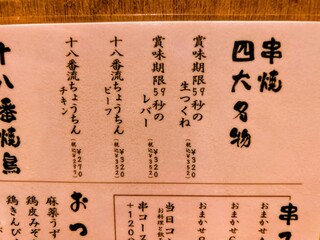 串焼
四大名物
賞味期限59秒の
生つくね
¥320
(税込¥352)
賞味期限59秒の
レバー
¥320
(税込¥352)
十八番流ちょうちん
ビーフ
¥320
(税込¥352)
十八番流ちょうちん
チキン
¥270
十八番焼鳥
串
おまかせ
おまかせ
当日コー
串コース
+120
おつ
麻薬うず
鶏皮みぞ
鶏きんぴ